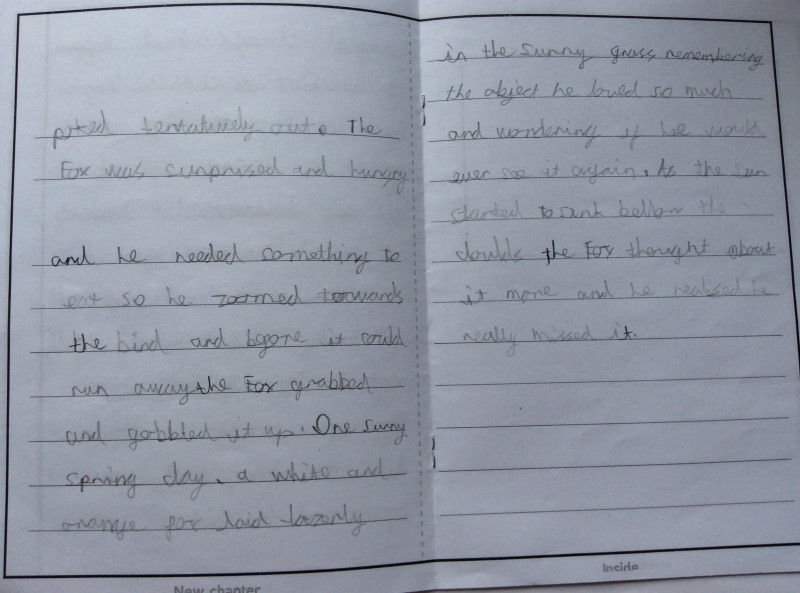 poted tentatively out. The
Fox was surprised and hungry
and he needed something to
eat so he zoomed torwards
the bird and bgore it could
run away the Fox grabbed
and gobbled it up. One sunny
spring day, a white and
orange fox laid
New chapter
in the sunny grass remembering
the object he loved so much
and wondering if he would
ever see it again. As the sun
started to sink bellow the
the Fox thought about
it more and he realised he
really missed it.
Inside